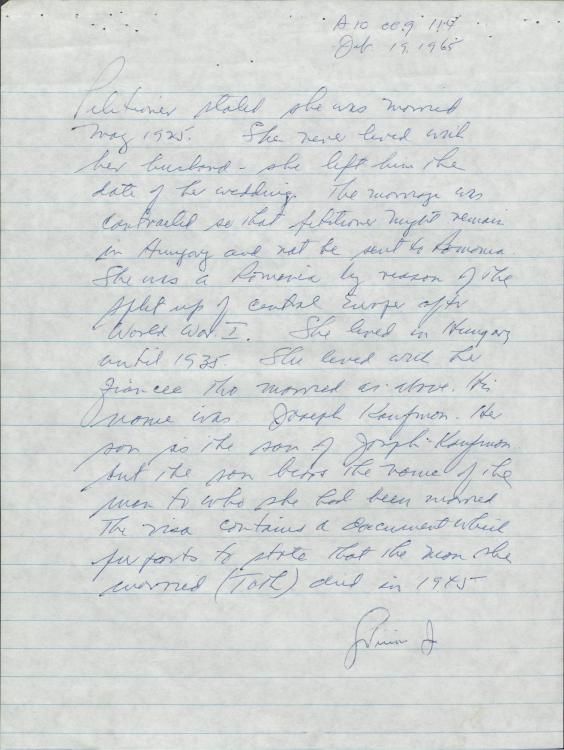 Feb 19, 1965
Petitioner stated she was married
May 1925. She never lived with
her husband - she left him the
date of her wedding. The marriage was
contracted so that petitioner might remain
in Hungary and not be sent to Romania.
She was a Romania by reason of the
split up of central Europe after
World War I. She lived in Hungary
until 1935. She lived with her
Fiancee tho married as above. His
name was Joseph Kaufman. Her
son is the son of Joseph Kaufman
but the son bears the name of the
man to who she had been married
The visa contains a document which
purports to state that the man she
married (Toth) died in 1945